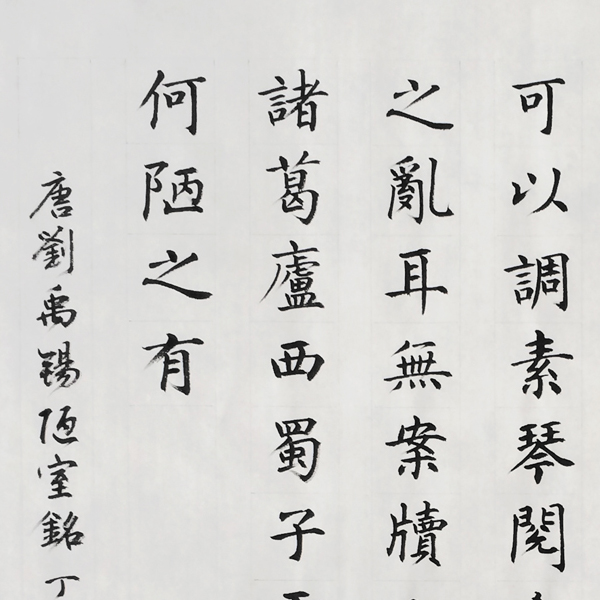 可以調素琴閱
之亂耳無案牘
諸葛廬西蜀子
何陋之有
唐劉禹錫陋室銘丁